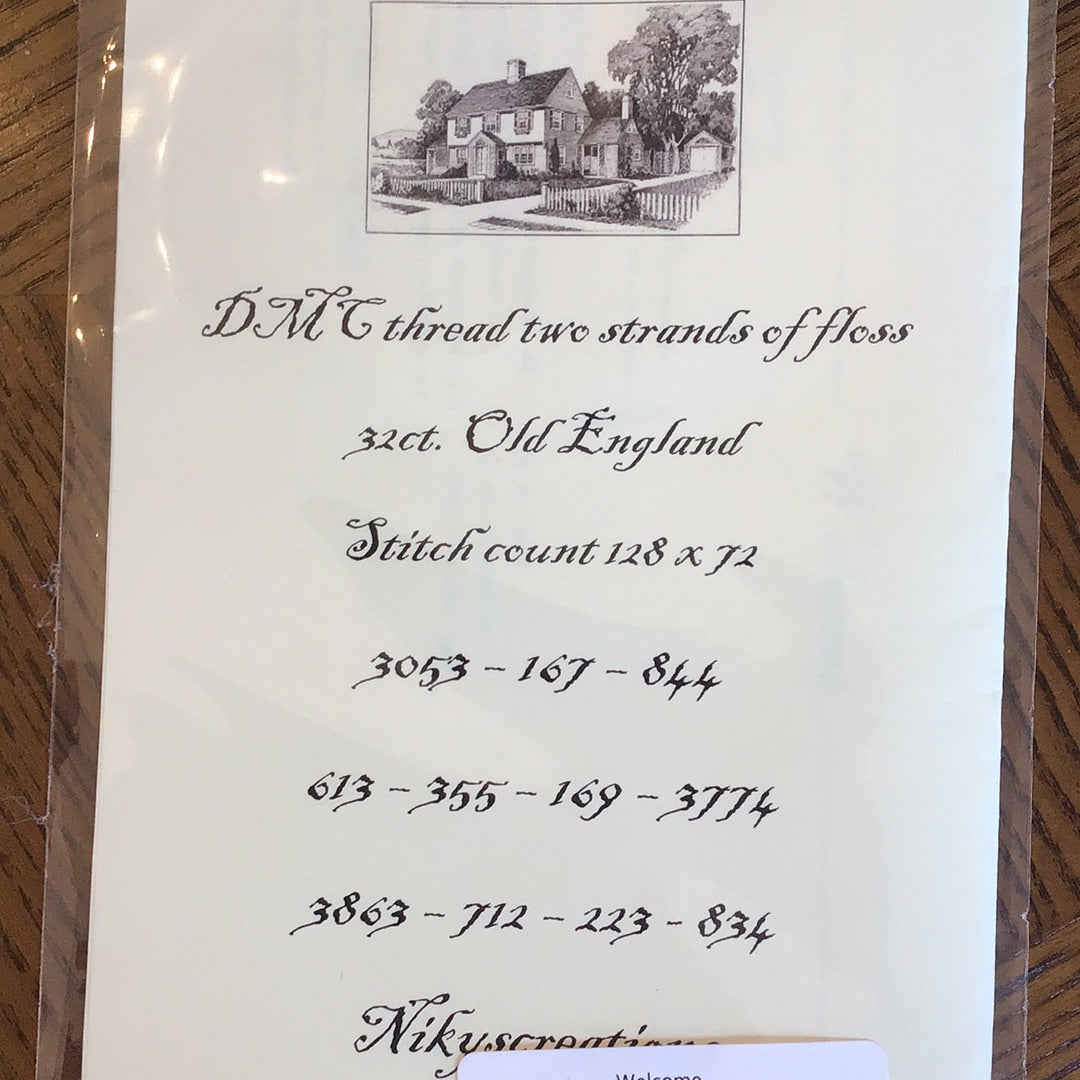 DMC thread two strands of floss
32ct. Old England
Stitch count 128 x 72
3053 - 167 - 844
613 - 355 - 169 - 3774
3863 - 712 - 223 - 834
Nikyscreations
Welcome